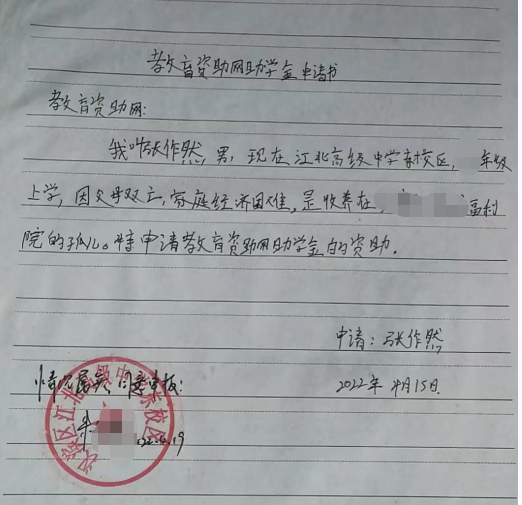 教育资助网助学金申请书
教育资助网:
我叫张作然,男,现在江北高级中学东校区,年级
上学,因父母双亡,家庭经济困难,是收养在,福利
院的孤儿。特申请教育资助网助学金的资助。
申请:张作然
2022年4月15日
情况属实,同意申报:
江北 中 东校区